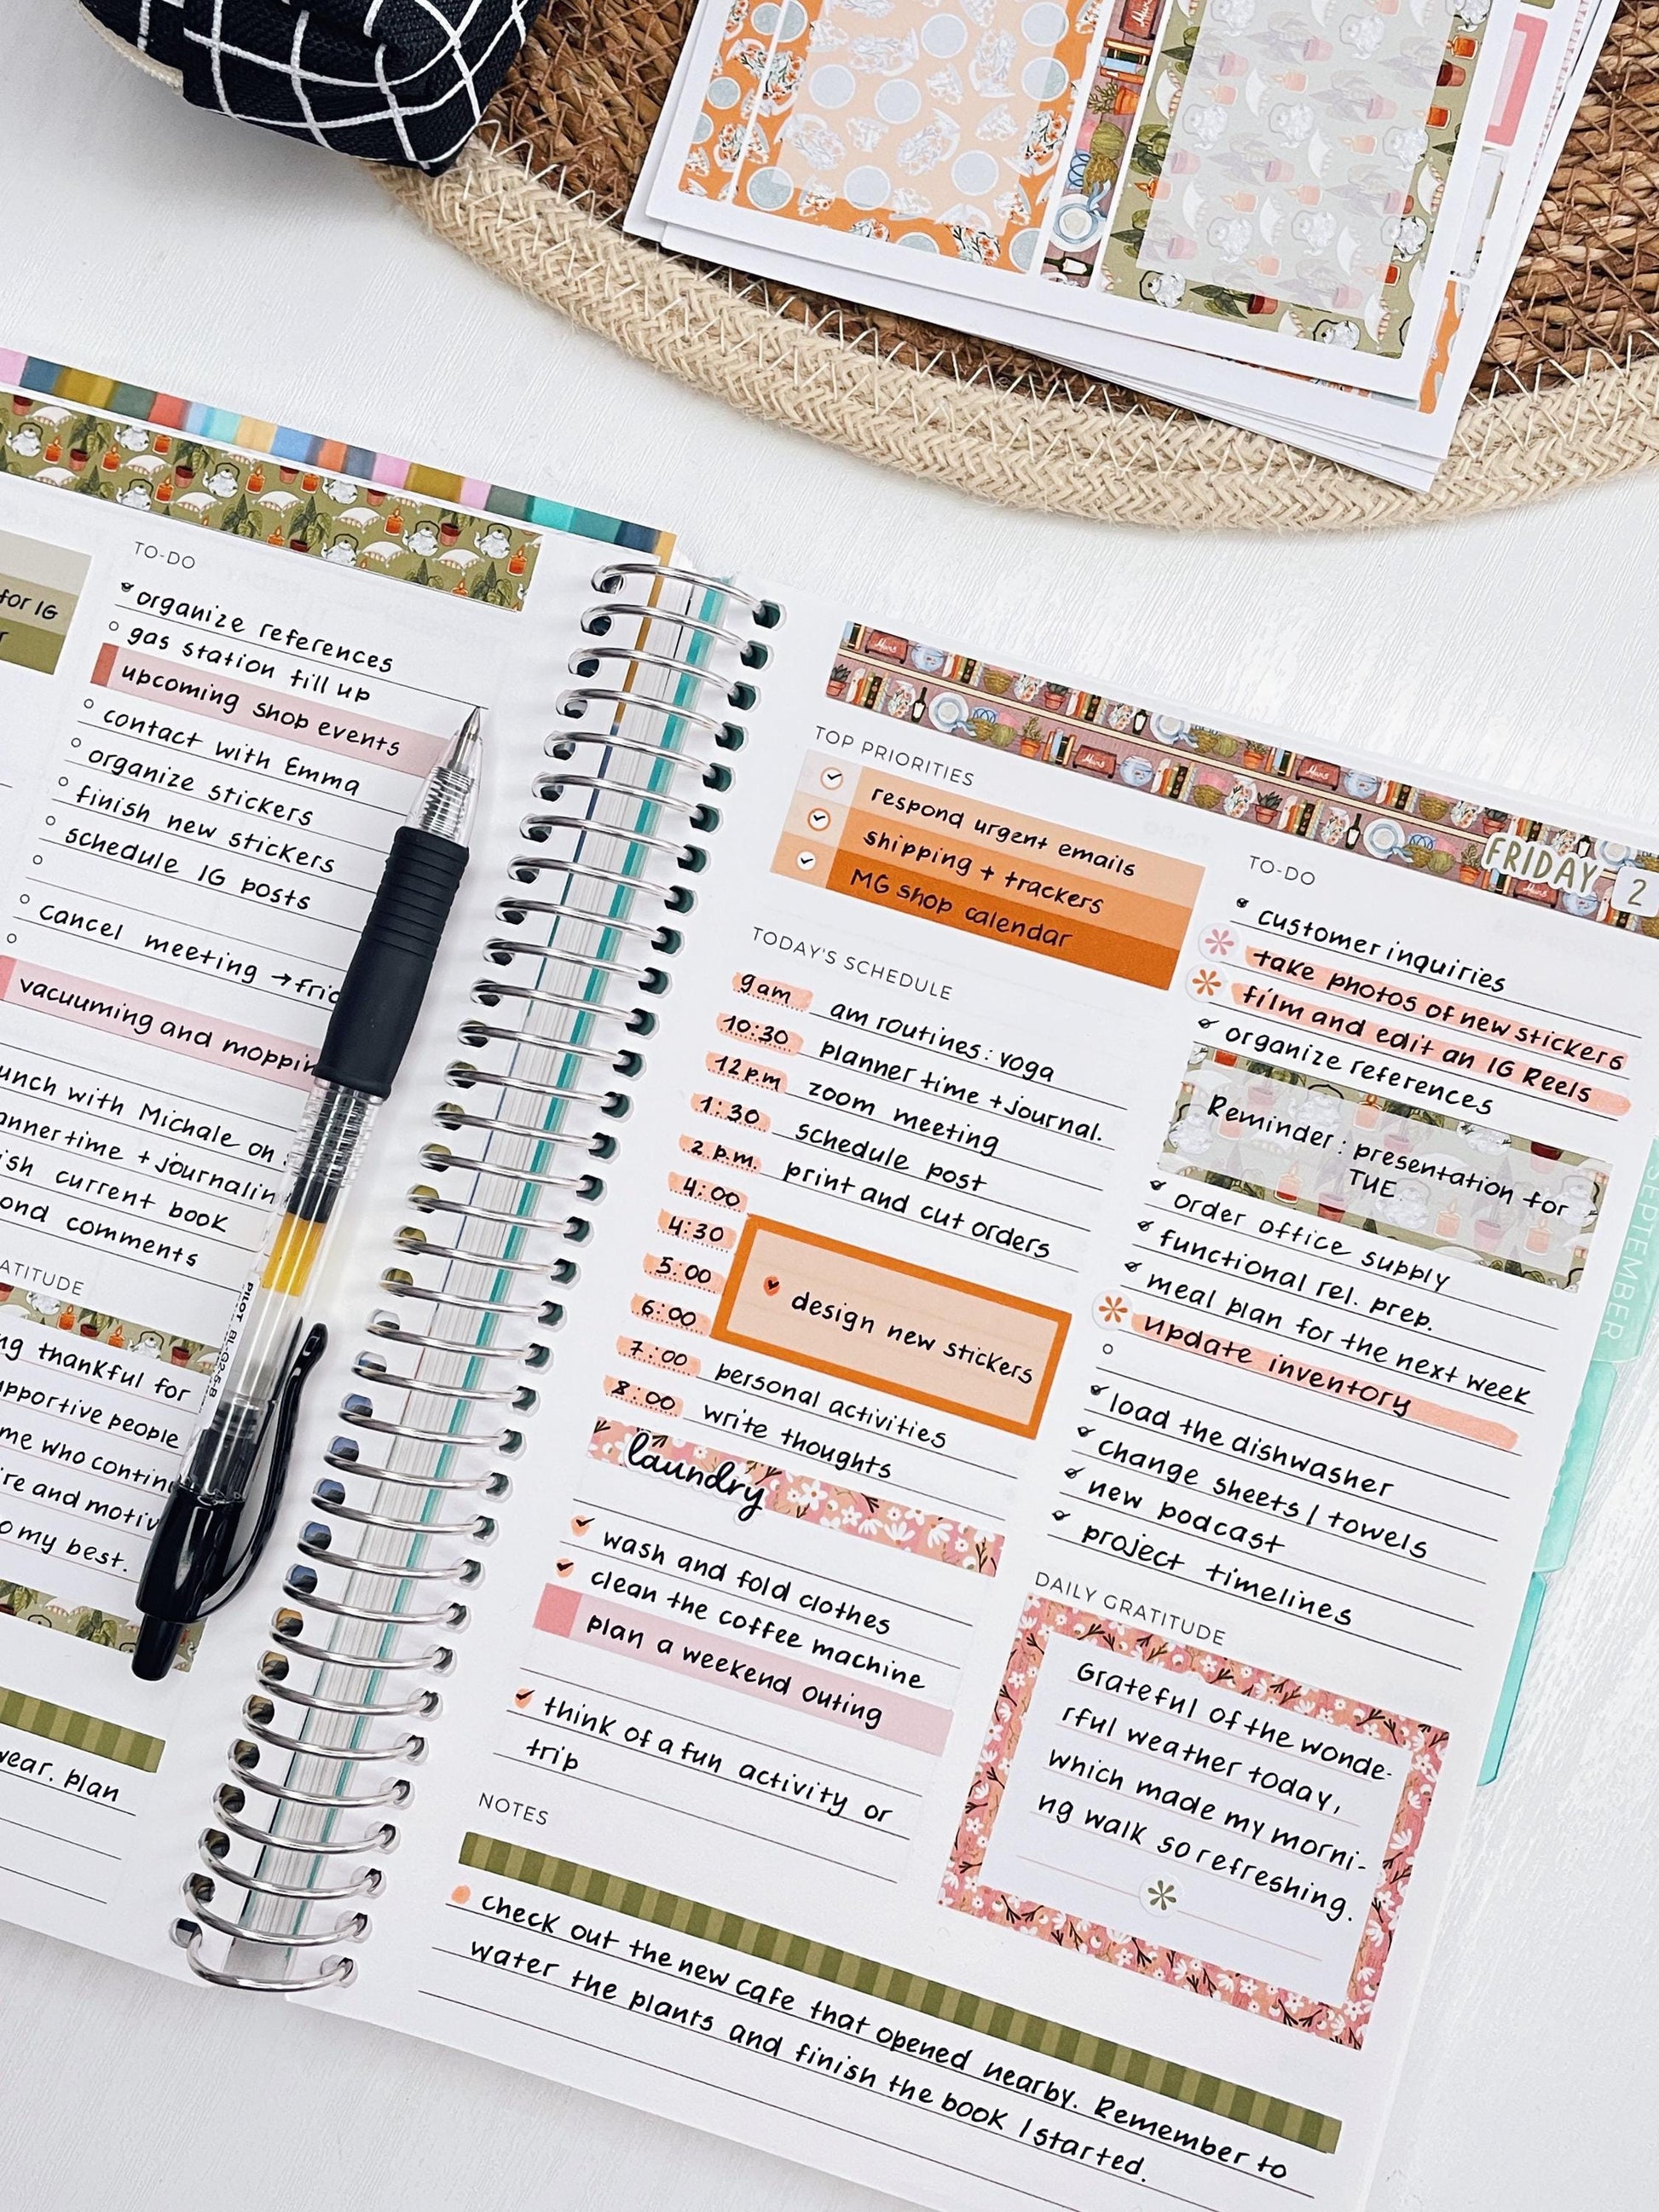 for IG
TO-DO
organize references
gas station fill up
upcoming shop events
contact with Emma
organize stickers
finish new stickers
schedule IG posts
cancel meeting →
vacuuming and moppin
unch with Michale on
time + journalin
ish current book
ond comments
ATITUDE
ng thankful for
upportive people
me who contin
re and motiv
o my best.
wear. plan
PILOT BL-G2-5-B
TOP PRIORITIES
respond urgent emails
shipping + trackers
MG shop calendar
TODAY'S SCHEDULE
9am am routines: yoga
10:30 planner time + journal.
12p.m zoom meeting
1:30 schedule post
2 p.m. print and cut orders
4:00
4:30
5:00 design new stickers
6:00
7:00 personal activities
8:00 write thoughts
laundry
wash and fold clothes
clean the coffee machine
plan a weekend outing
think of a fun activity or
trip
FRIDAY 2
TO-DO
customer inquiries
take photos of new stickers
film and edit an IG Reels
organize references
Reminder: presentation for
TUE
order office supply
functional rel. prep.
meal plan for the next week
update inventory
load the dishwasher
change sheets / towels
new podcast
project timelines
DAILY GRATITUDE
Grateful of the wonde-
rful weather today,
which made my morni-
ng walk so refreshing.
NOTES
check out the new cafe that opened nearby. Remember to
water the plants and finish the book I started.
SEPTEMBER